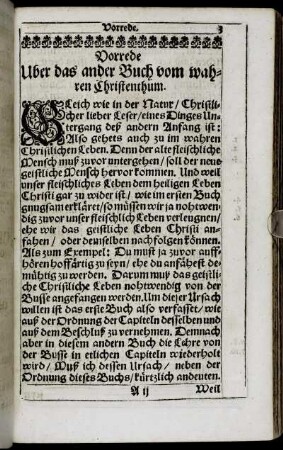 Vorrede. 3
Vorrede
Uber das ander Buch vom wah-
ren Christenthum.
GLeich wie in der Natur / Christli-
cher lieber Leser / eines Dinges Un-
tergang deß andern Anfang ist:
Also gehets auch zu im wahren
Christlichen Leben. Denn der alte fleischliche
Mensch muß zuvor untergehen / soll der neue
geistliche Mensch hervor kommen. Und weil
unser fleischliches Leben dem heiligen Leben
Christi gar zu wider ist / wie im ersten Buch
gnugsam erkläret / so müssen wir ja nohtwen-
dig zuvor unser fleischlich Leben verleugnen /
ehe wir das geistliche Leben Christi an-
fahen / oder demselben nachfolgen können.
Als zum Exempel: Du must ja zuvor auff-
hören hoffärtig zu seyn / ehe du anfähest de-
mühtig zu werden. Darum muß das geistli-
che Christliche Leben nohtwendig von der
Busse angefangen werden. Um dieser Ursach
willen ist das erste Buch also verfasset / wie
auß der Ordnung der Capiteln desselben und
auß dem Beschluß zu vernehmen. Demnach
aber in diesem andern Buch die Lehre von
der Busse in etlichen Capiteln wiederholt
wird / Muß ich dessen Ursach / neben der
Ordnung dieses Buchs / kürtzlich andeuten.
A ij Weil